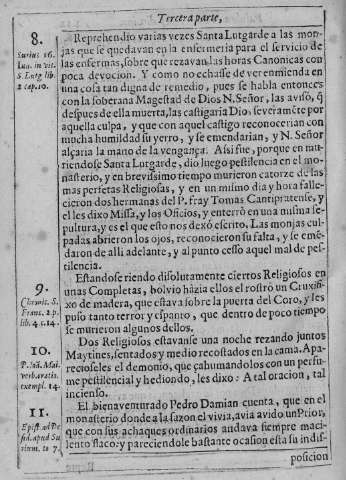 Tercera parte,
8.
Surius 16.
Iun. in vit.
S. Lutg lib.
2 cap. 10.
Reprehendio varias vezes Santa Lutgarde a las mon-
jas que se quedavan en la enfermeria para el servicio de
las enfermas, sobre que rezavan las horas Canonicas con
poca devocion. Y como no echasse de ver enmienda en
una cosa tan digna de remedio, pues se habla entonces
con la soberana Magestad de Dios N. Señor, las avisò, q̃
despues de ella muerta, las castigaria Dios severamẽte por
aquella culpa, y que con aquel castigo reconocerian con
mucha humildad su yerro, y se emendarian, y N. Señor
alçaria la mano de la vengança. Assi fue, porque en mu-
riendose Santa Lutgarde, dio luego pestilencia en el mo-
nasterio, y en brevissimo tiempo murieron catorze de las
mas perfetas Religiosas, y en un mismo dia y hora falle-
cieron dos hermanas del P. fray Tomas Cantipratense, y
el les dixo Missa, y los Oficios, y enterrò en una misma se-
pultura, y es el que esto nos dexò escrito. Las monjas cul-
padas abrieron los ojos, reconocieron su falta, y se emẽ-
daron de alli adelante, y al punto cessò aquel mal de pes-
tilencia.
9.
Chronic. S.
Franc. 2 p.
lib. 4. c. 14.
Estandose riendo disolutamente ciertos Religiosos en
unas Completas, bolvio hàzia ellos el rostro un Crucifi-
xo de madera, que estava sobre la puerta del Coro, y les
puso tanto terror y espanto, que dentro de poco tiempo
se murieron algunos dellos.
10.
exempl. 14.
Dos Religiosos estavanse una noche rezando juntos
Maytines, sentados y medio recostados en la cama. Apa-
recioseles el demonio, que çahumandolos con un perfu-
me pestilencial y hediondo, les dixo: A tal oracion, tal
incienso.
11.
El bienaventurado Pedro Damian cuenta, que en el
monasterio donde a la sazon el vivia, avia avido un Prior,
que con sus achaques ordinarios andava siempre maci-
lento flaco: y pareciendole bastante ocasion esta su indis-
posicion